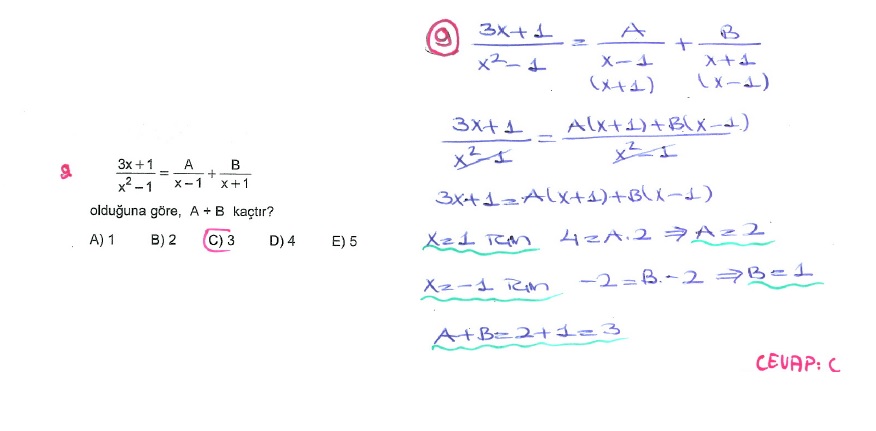 9
3x+1 / x²−1 = A / x−1 + B / x+1
olduğuna göre, A + B kaçtır?
A) 1 B) 2 C) 3 D) 4 E) 5
9 3x+1 / x²−1 = A / x−1 + B / x+1
(x+1) (x−1)
3x+1 / x²−1 = A(x+1)+B(x−1) / x²−1
3x+1=A(x+1)+B(x−1)
x=1 için 4=A.2 ⇒ A=2
x=−1 için −2=B.−2 ⇒ B=1
A+B=2+1=3
CEVAP: C